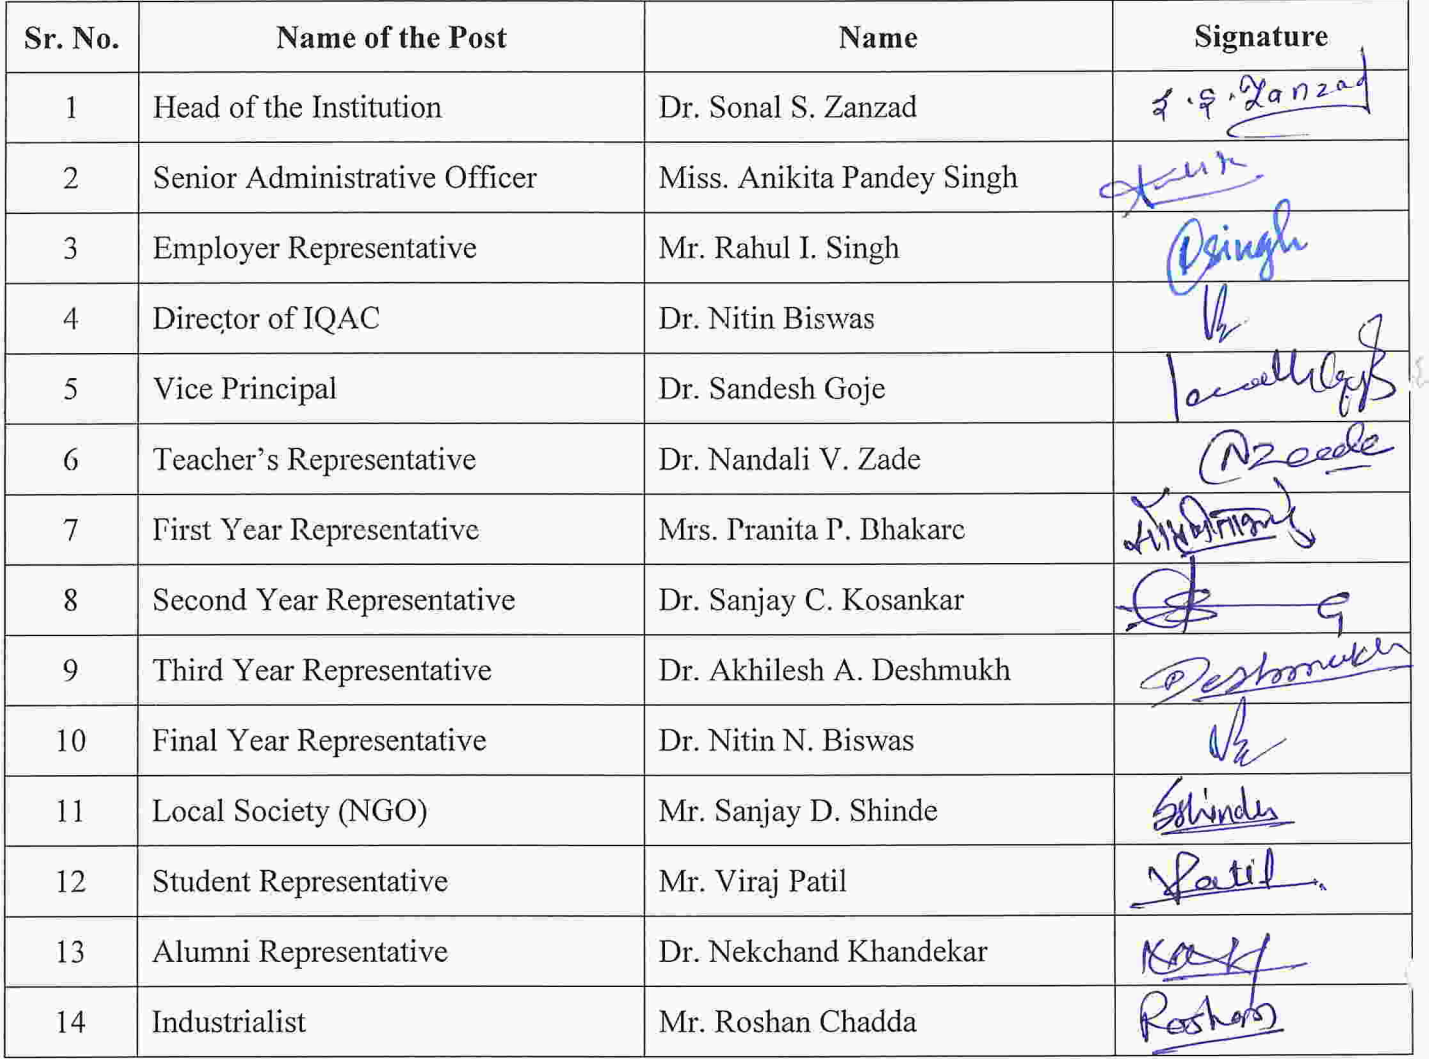 Sr. No. Name of the Post Name Signature
1 Head of the Institution Dr. Sonal S. Zanzad Zanzad
2 Senior Administrative Officer Miss. Anikita Pandey Singh
3 Employer Representative Mr. Rahul I. Singh Singh
4 Director of IQAC Dr. Nitin Biswas
5 Vice Principal Dr. Sandesh Goje
6 Teacher’s Representative Dr. Nandali V. Zade
7 First Year Representative Mrs. Pranita P. Bhakare
8 Second Year Representative Dr. Sanjay C. Kosankar
9 Third Year Representative Dr. Akhilesh A. Deshmukh Deshmukh
10 Final Year Representative Dr. Nitin N. Biswas
11 Local Society (NGO) Mr. Sanjay D. Shinde SShinde
12 Student Representative Mr. Viraj Patil Patil
13 Alumni Representative Dr. Nekchand Khandekar
14 Industrialist Mr. Roshan Chadda Roshan